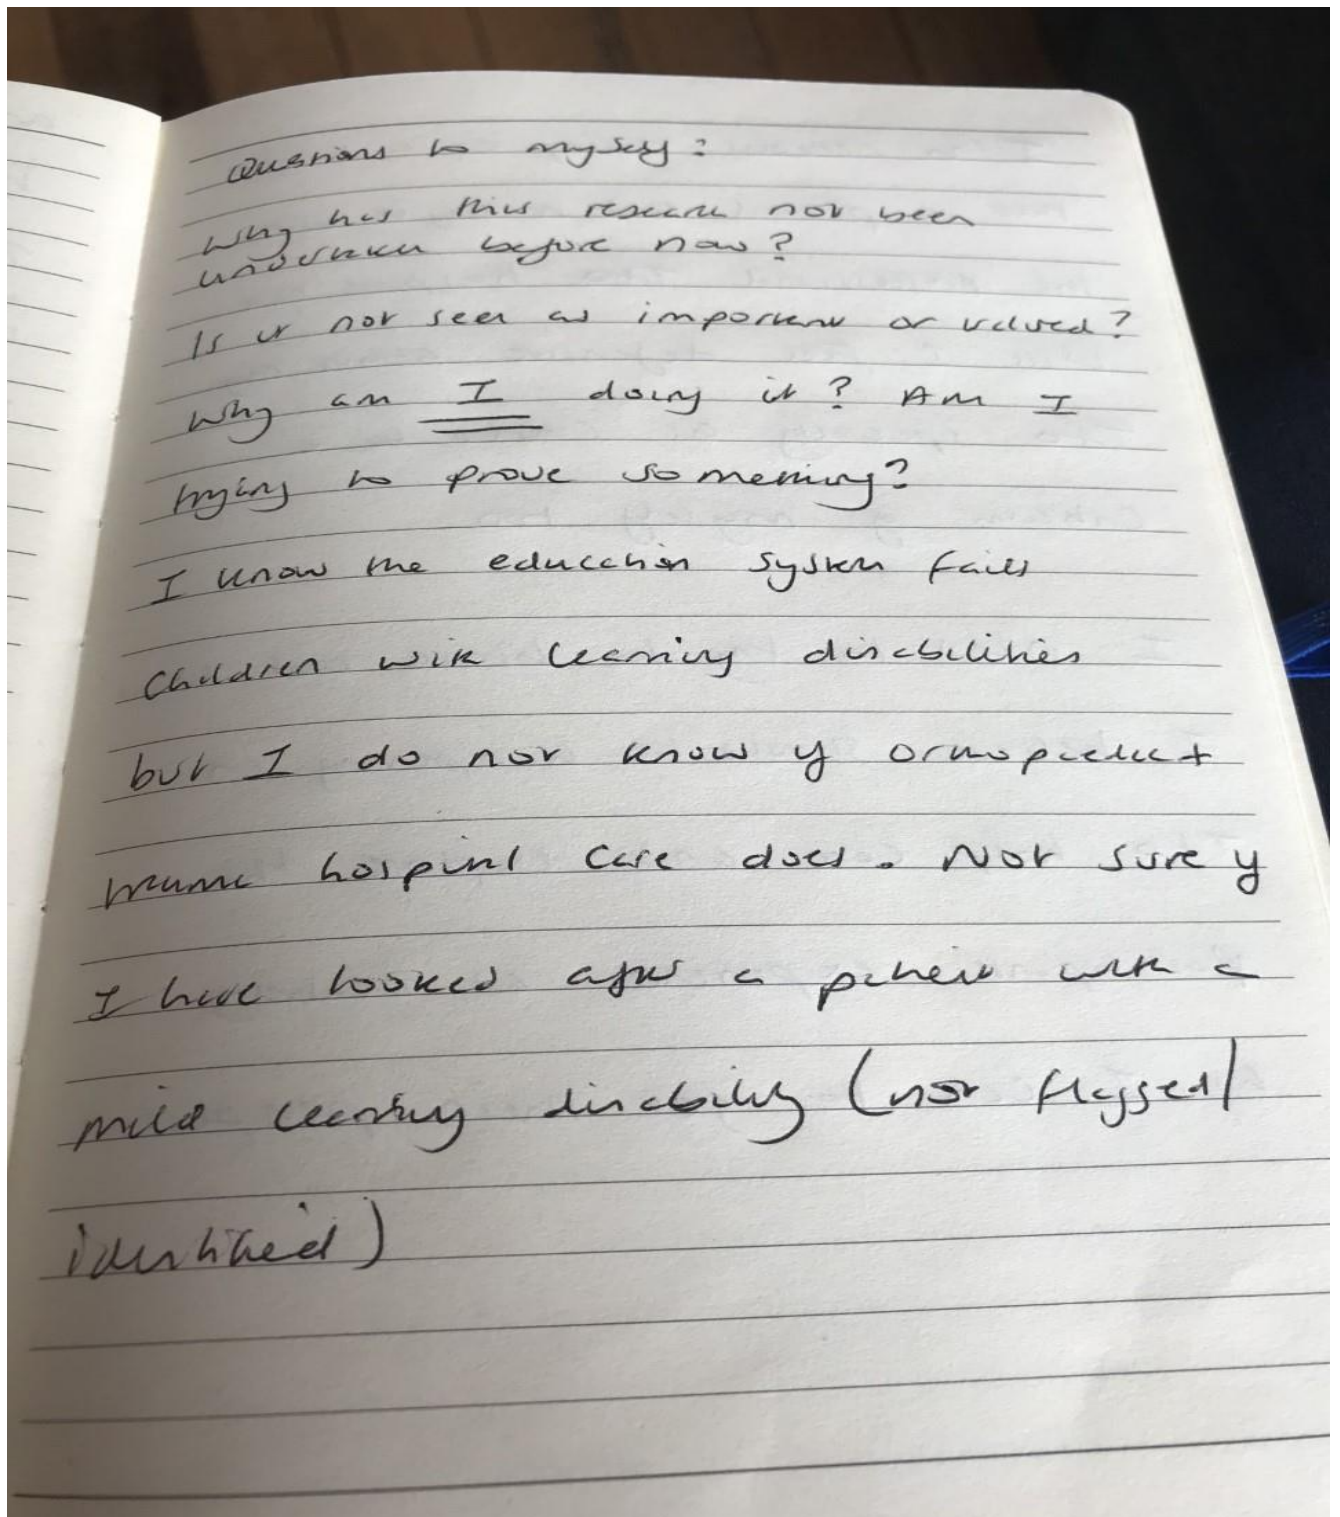 Questions to myself:
Why has this research not been
undertaken before now?
Is it not seen as important or valued?
Why am I doing it? Am I
trying to prove something?
I know the education system fails
children with learning disabilities
but I do not know if orthopaedic +
trauma hospital care does. Not sure if
I have looked after a patient with a
mild learning disability (not flagged/
identified)